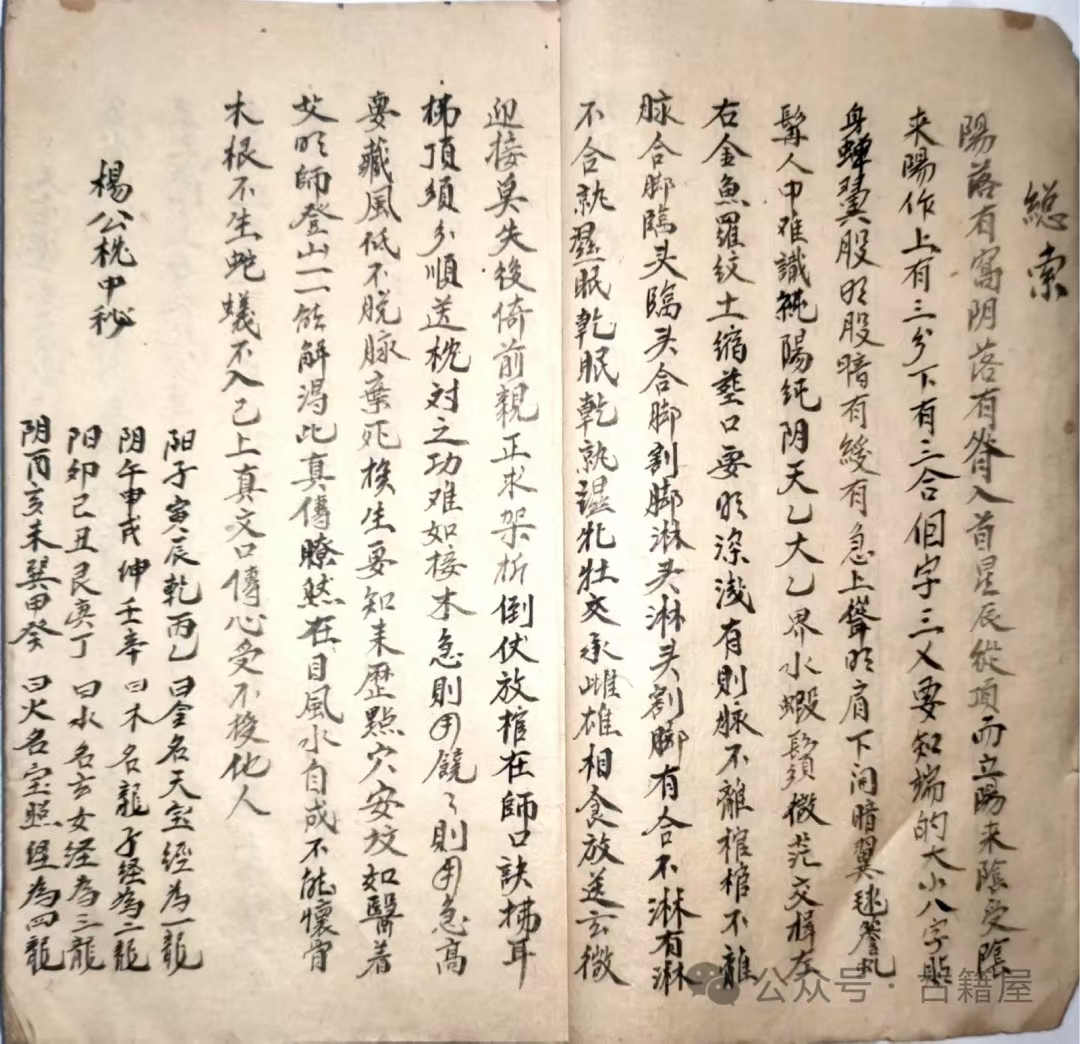 總索
陽落有窩阴落有脊入首星辰從項而立陽来陰受陰
来陽作上有三分下有三合個字三乂要知端的大小八字貼
身蟬翼股明股暗有緩有急上聳明肩下问暗翼毬簷
髯人中难識純陽純阴天乙大乙界水蝦鬚微茫交揖左
右金魚羅紋土缩塟口要明深浅有則脉不離棺棺不離
脉合脚臨头臨头合脚割脚淋头淋头割脚有合不淋有淋
不合就濕眠乾眠乾就濕牝牡交承雌雄相食放送玄微
迎接莫失後倚前親正求架折倒伏放棺在師口訣拂耳
拂頂須分順送枕对之功难如接木急則用饒々則用急高
要藏風低不脱脉棄死挨生要知来歷點穴安坟如醫着
艾明師登山一一能解得此真傳瞭然在目風水自成不能懷骨
木根不生蛇蟻不入已上真文口傳心受不授化人
楊公枕中秘
阳子寅辰乾丙乙曰金名天宝經為一龍
阴午申戌坤壬辛曰木名龍子經為二龍
阳卯己丑艮庚丁曰水名玄女经為三龍
阴酉亥未巽甲癸曰火名宝照经為四龍
公众号·古籍屋